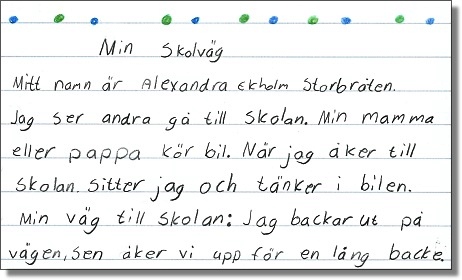 Min Skolväg
Mitt namn är Alexandra Ekholm Storbråten.
Jag ser andra gå till Skolan. Min mamma
eller pappa kör bil. När jag åker till
Skolan. Sitter jag och tänker i bilen.
Min väg till Skolan: Jag backar ut på
vägen, sen åker vi upp för en lång backe.